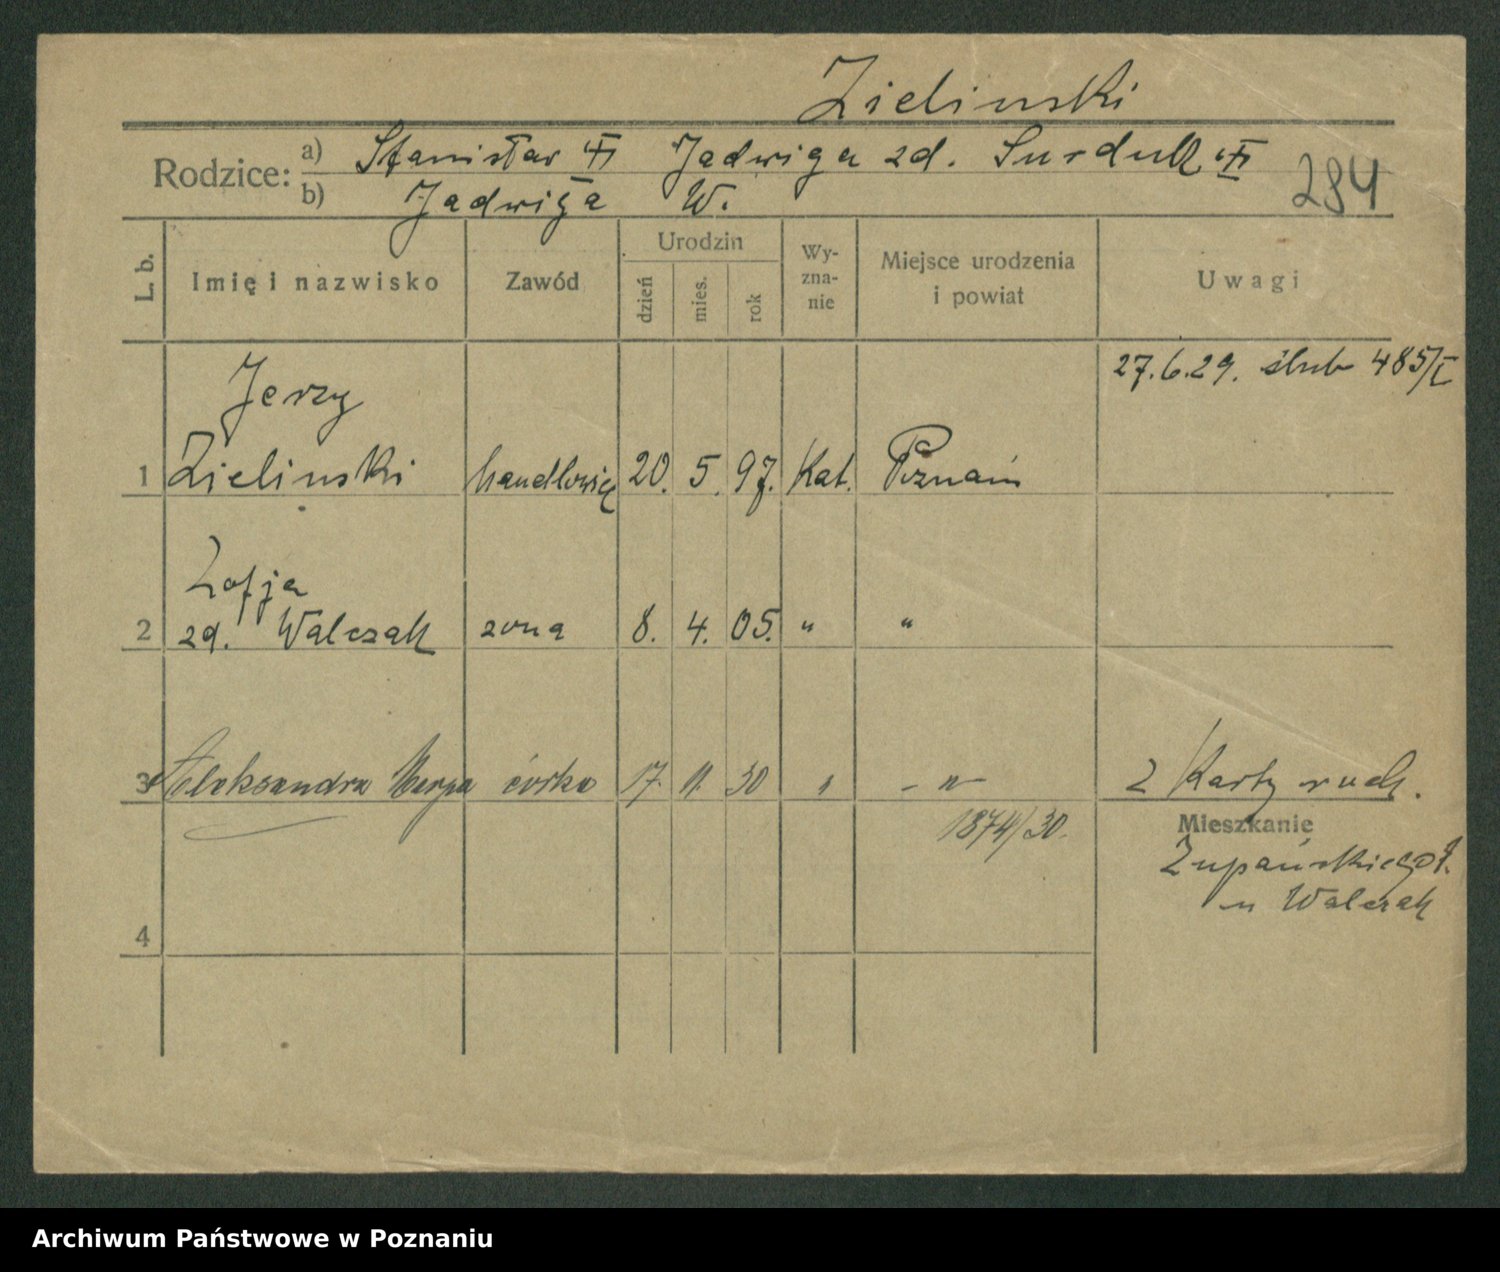 Zielinski
Rodzice: a) Stanisław Jadwiga zd. Surdyk
b) Jadwiga W.
284
L. b. Imię i nazwisko Zawód Urodzin dzień mies. rok Wy-zna-nie Miejsce urodzenia i powiat Uwagi
27.6.29. ślub 485/I
Jerzy
1 Zielinski handlowiec 20. 5. 97. Kat. Poznań
Zofja
2 zd. Walczak zona 8. 4. 05. " "
3 Aleksandra Marya córka 17. 11. 30 " - " - 2 Karty ruch.
1874/30.
Mieszkanie
Zupańskiego
u Walczak
4
Archiwum Państwowe w Poznaniu